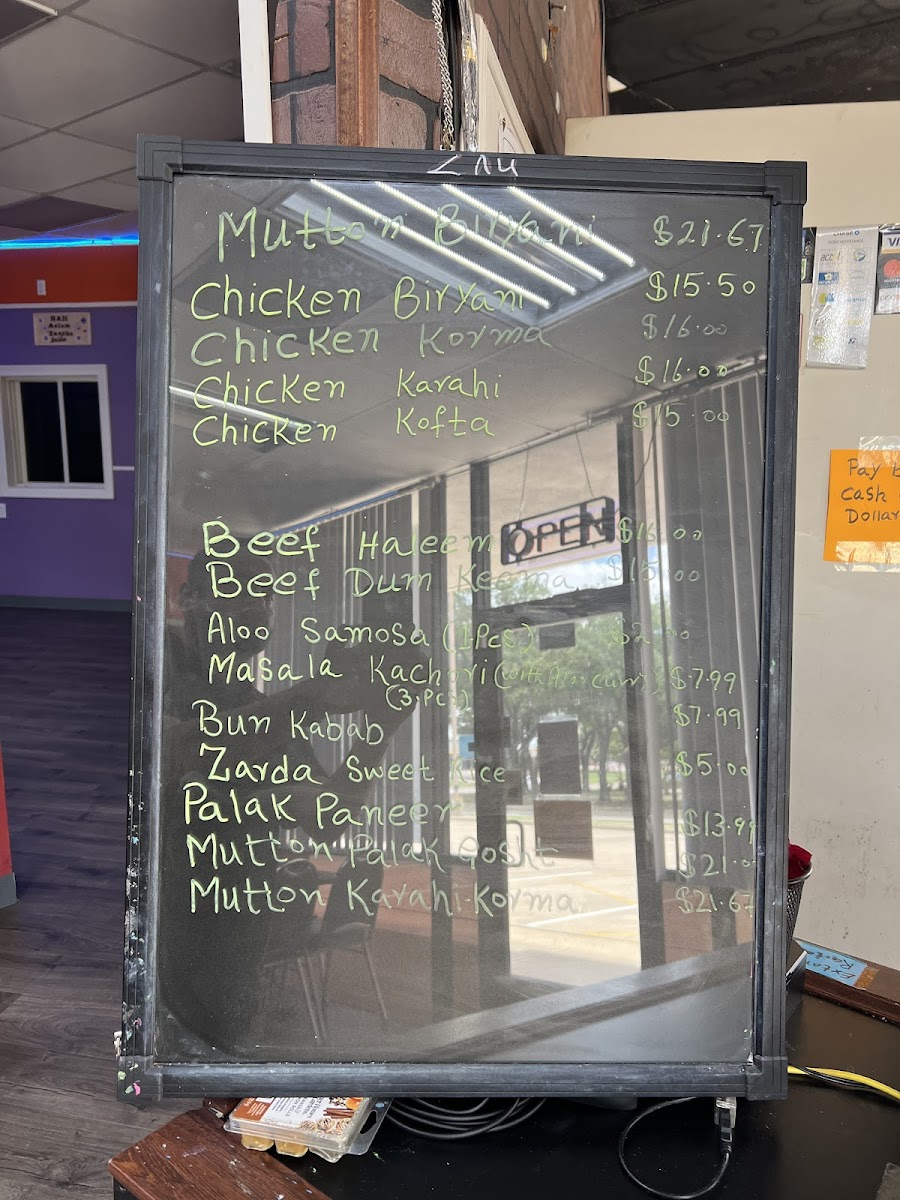 Mutton Biryani $21.67
Chicken Biryani $15.50
Chicken Korma $16.00
Chicken Karahi $16.00
Chicken Kofta $15.00
OPEN
Beef Haleem $16.00
Beef Dum Keema $15.00
Aloo Samosa (1Pcs) $2.00
Masala Kachori (with Aloo curry) $7.99
(3.Pcs)
Bun Kabab $7.99
Zarda Sweet Rice $5.00
Palak Paneer $13.99
Mutton Palak Gosht $21.0
Mutton Karahi.Korma $21.67
CHASE
VISA
Pay
Cash
Dollar